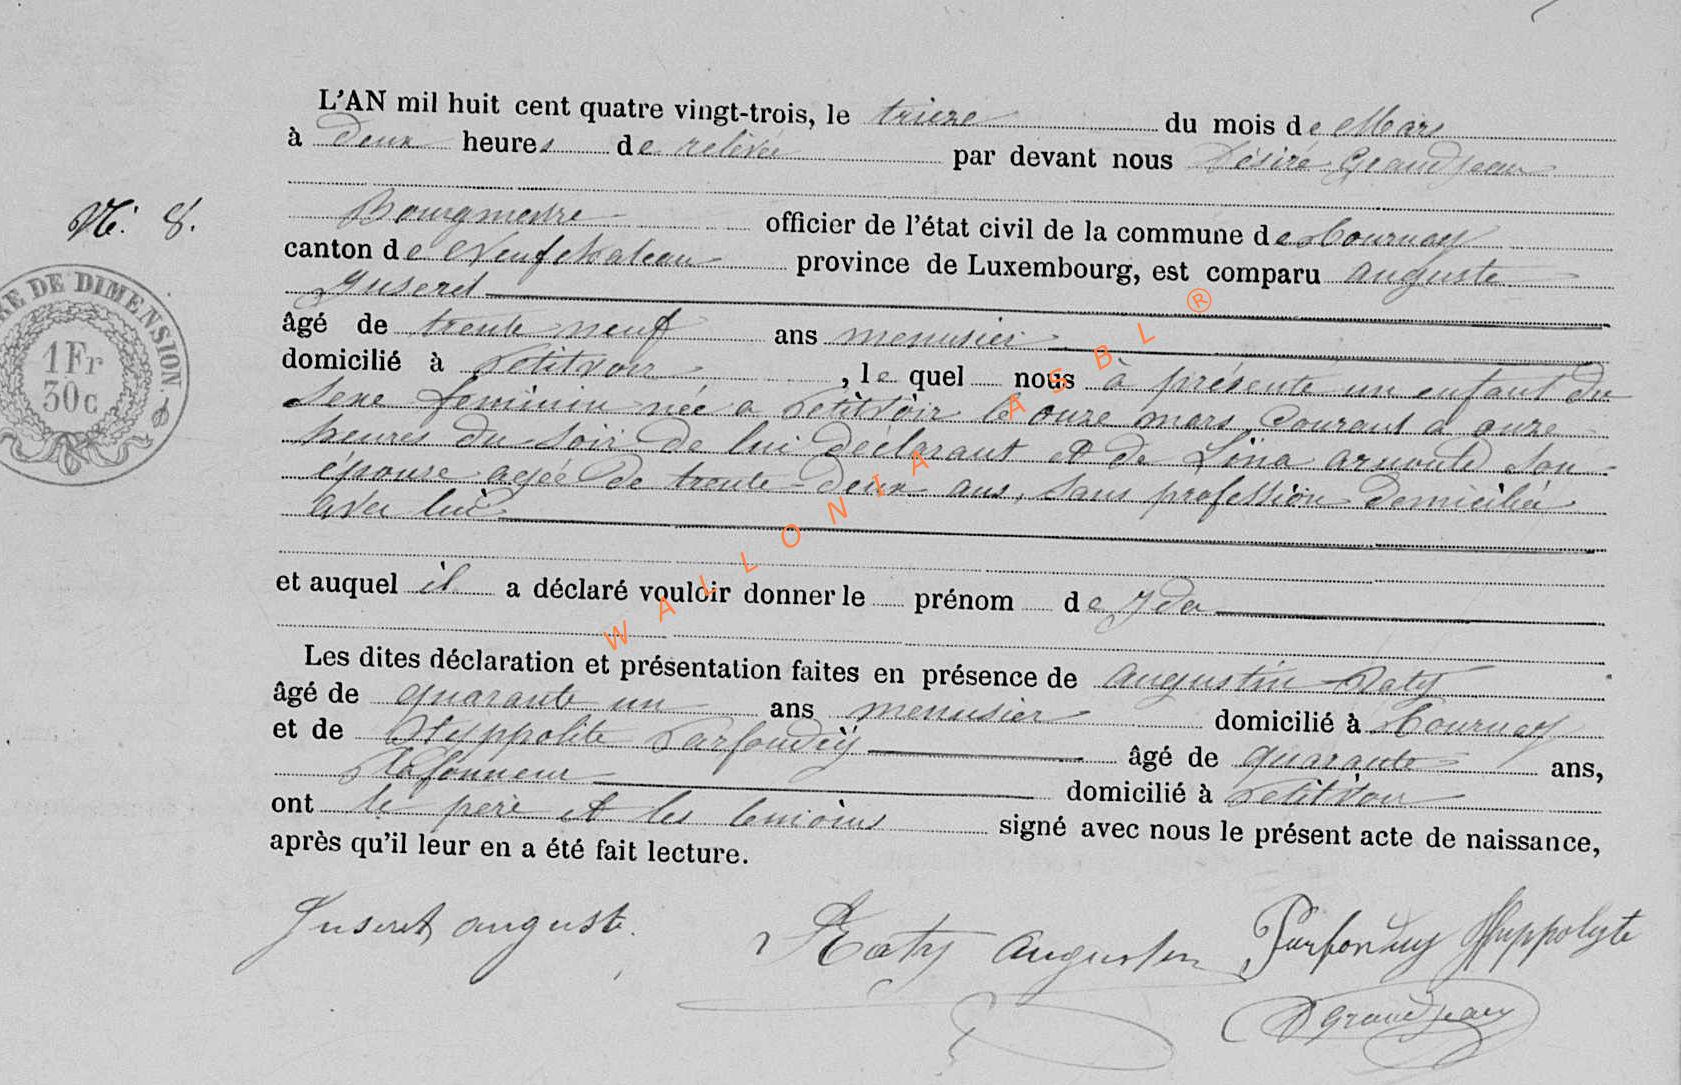 L'AN mil huit cent quatre vingt-trois, le trieze du mois de Mars
à deux heures de relevée par devant nous Désiré Grandjean
Bourgmestre officier de l'état civil de la commune de Tournay
N°. 8.
canton de Neufchateau province de Luxembourg, est comparu auguste
Juseret
RE DE DIMENSION.
1Fr
30c
âgé de trente neuf ans menusier
domicilié à Petitvoir, le quel nous à présenté un enfant du
sexe féminin née a Petitvoir le onze mars courant a onze
heures du soir de lui déclarant et de Lina arnould son
épouse agée de trente-deux ans, sans profession domiciliée
avec lui
et auquel il a déclaré vouloir donner le prénom de Ida
Les dites déclaration et présentation faites en présence de augustin
âgé de quarante un ans menusier domicilié à Tournay
et de Hyppolite Parfondry âgé de quarante ans,
Plafonneur domicilié à Petitvoir
ont le père et les temoins signé avec nous le présent acte de naissance,
après qu'il leur en a été fait lecture.
Juseret auguste.
augustin Parfondry Hyppolyte
D Grandjean
WALLONIA ASBL ®